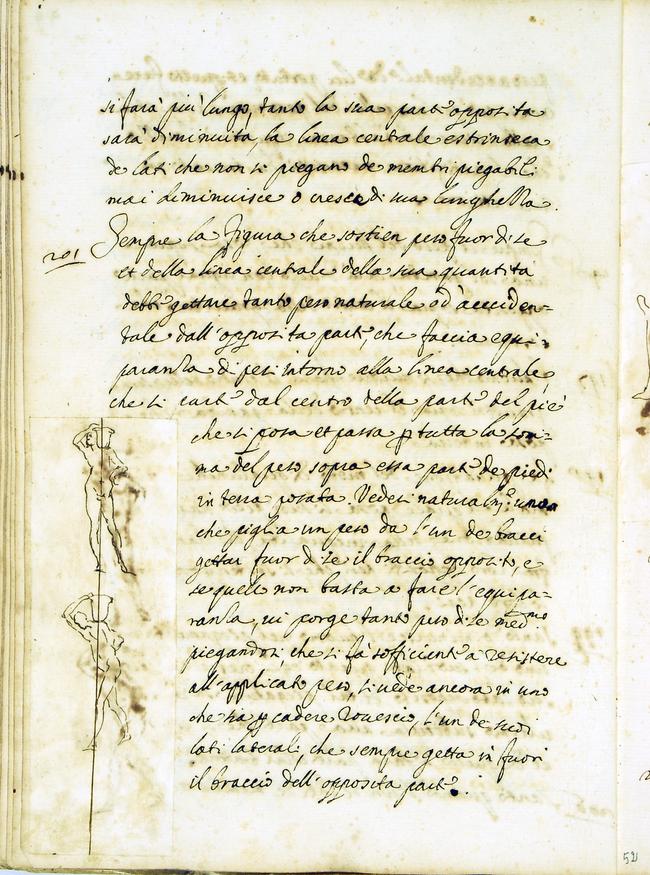 si farà più lungo, tanto la sua parte opposita
sarà diminuita, la linea centrale estrinseca
de lati che non si piegano de membri piegabili
mai diminuisce o cresce di sua lunghezza.
201 Sempre la Figura che sostien peso fuor di se
et della linea centrale della sua quantità
debbe gettare tanto peso naturale od acciden=
tale dall'opposita parte, che faccia equi=
paranza di pesi intorno alla linea centrale
che si parte dal centro della parte del piè
che si posa et passa p tutta la som=
ma del peso sopra essa parte de piedi
in terra posata. Vedesi naturalmte. uno
che piglia un peso da l'un de bracci
gettar fuor di se il braccio opposito, e
se quello non basta a fare l'equipa=
ranza, vi porge tanto peso di se medmo.
piegandosi, che si fa sofficiente à resistere
all'applicato peso, si vede ancora in uno
che sia p cadere rovescio, l'un de suoi
lati laterali, che sempre getta in fuori
il braccio dell'opposita parte.
52